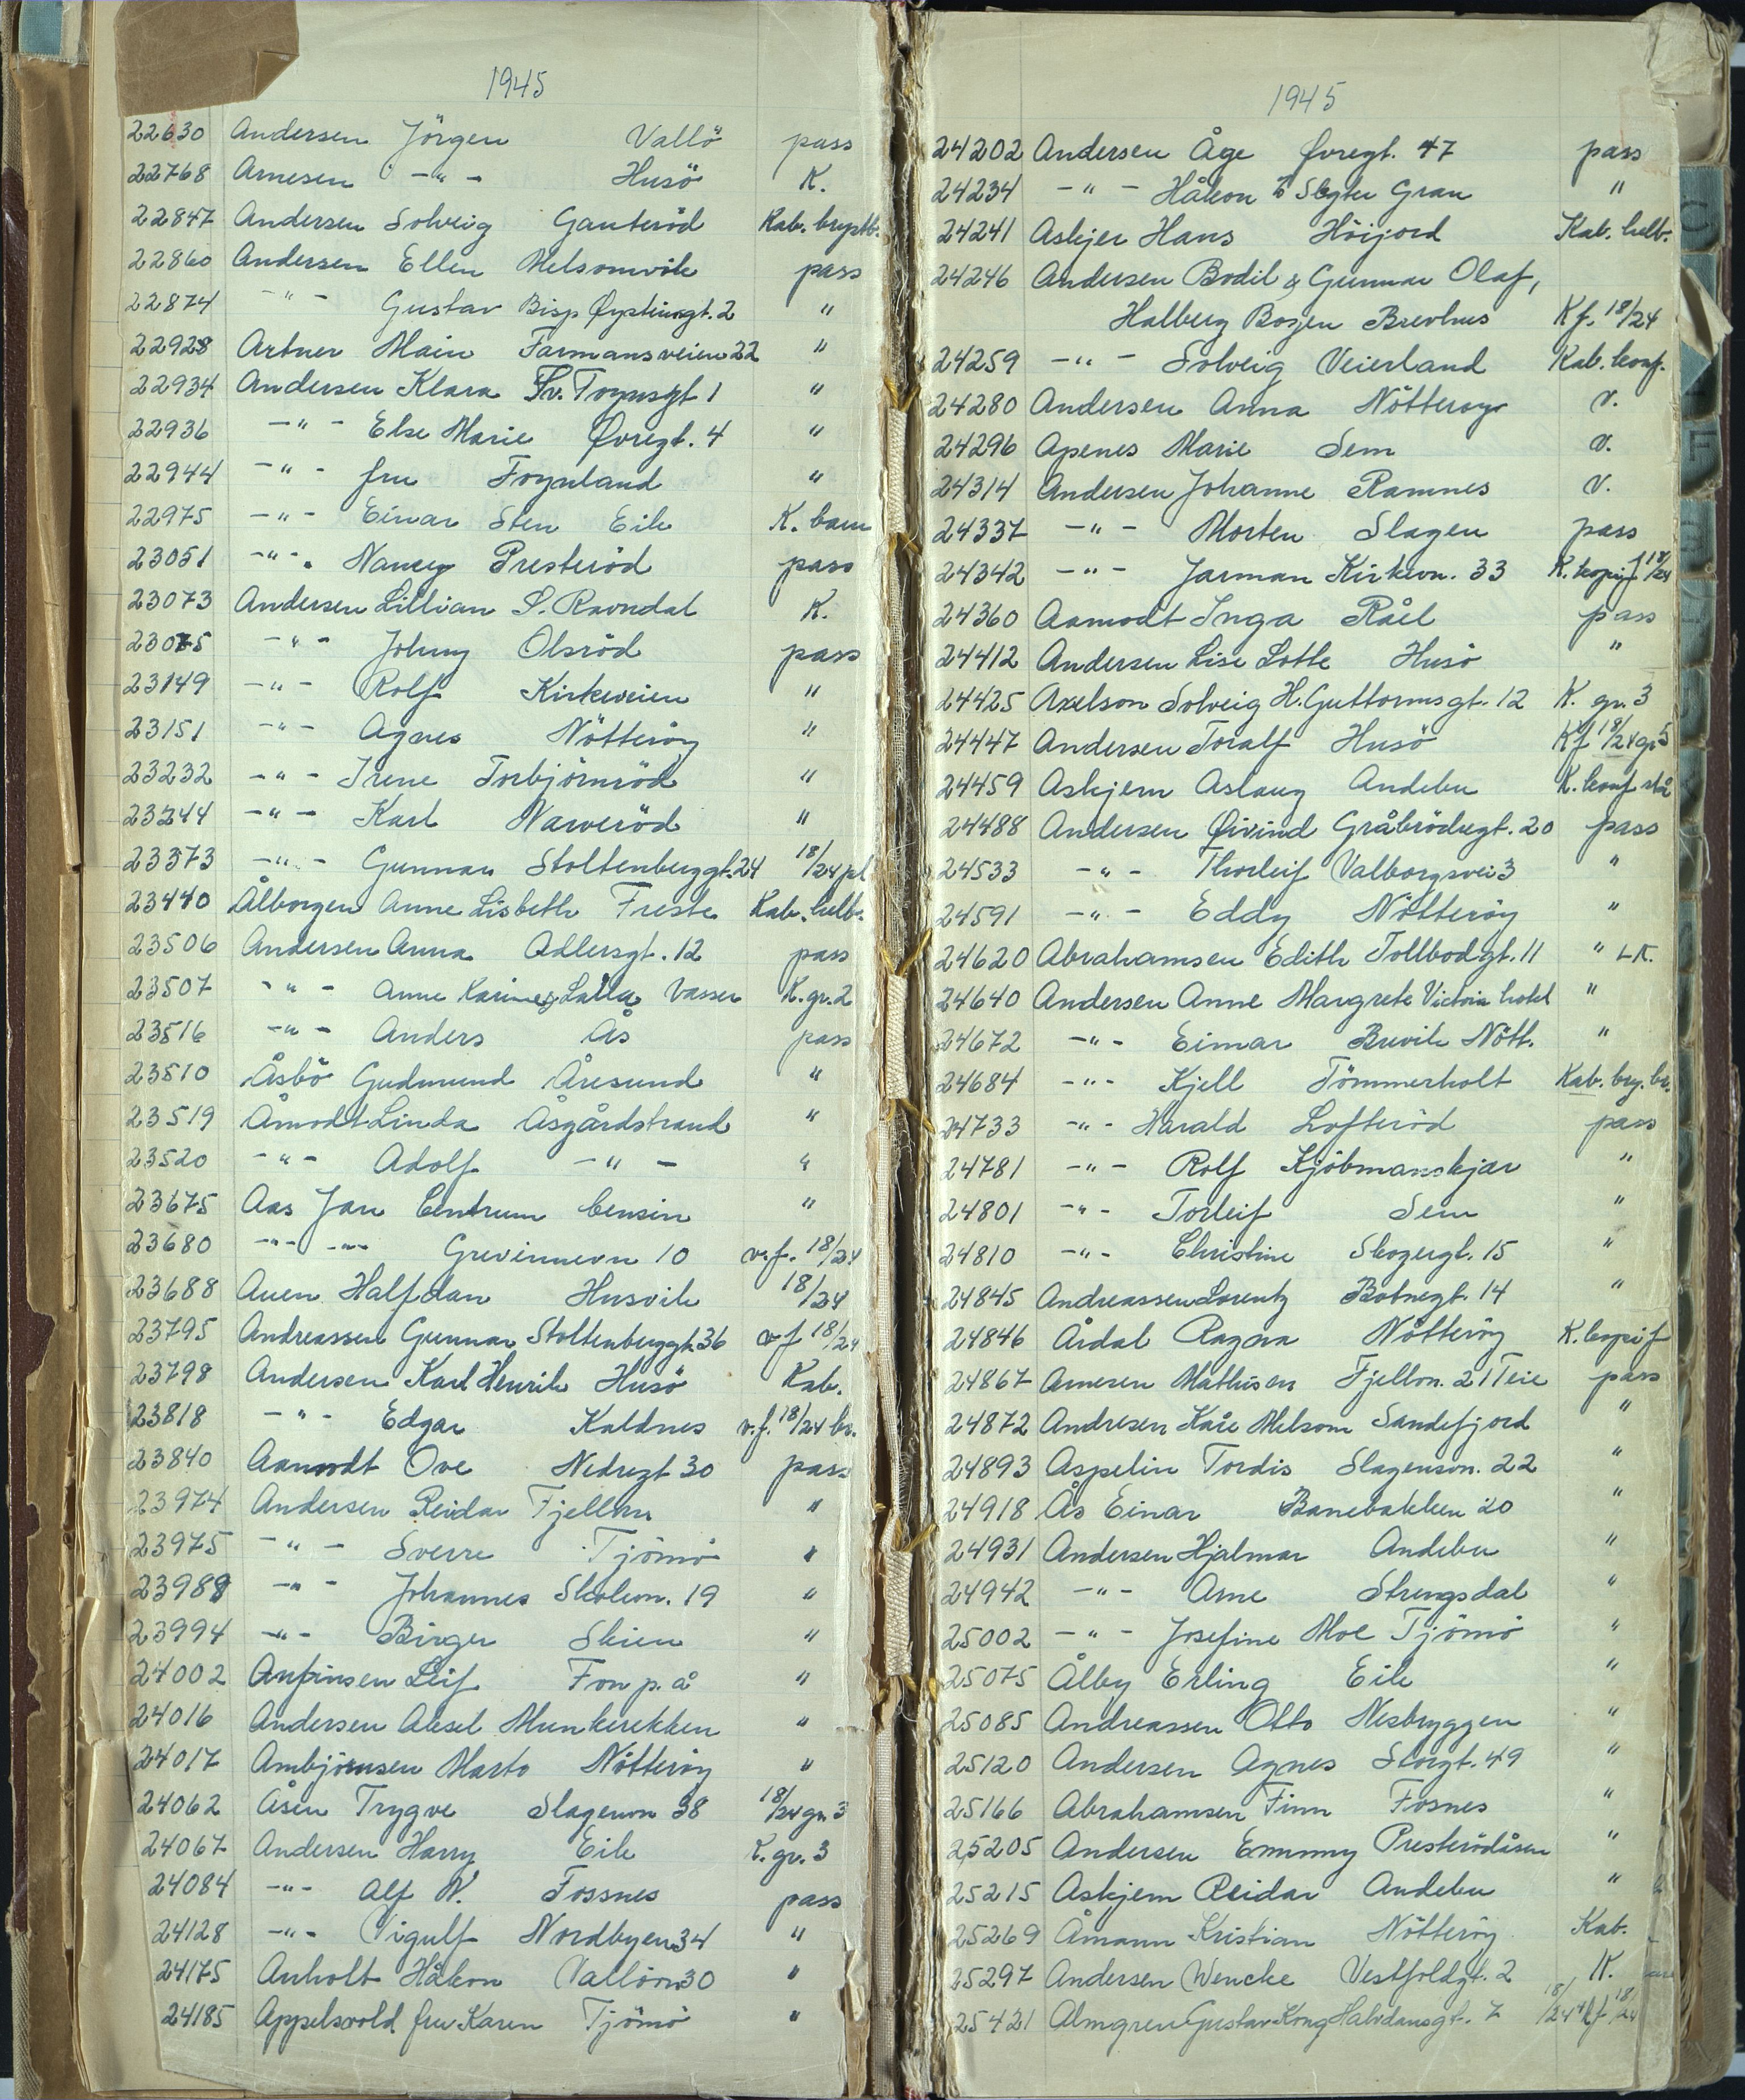 1945
22630 Andersen Jörgen Vallö pass
22768 Arnesen -"- Husö K.
22847 Andersen Solveig Gauteröd Kab. brystb.
22860 Andersen Ellen Melsomvik pass
22874 -"- Gustav Bisp Øysteinsgt. 2 "
22928 Artner Main Farmansveien 22 "
22934 Andersen Klara Sv. Foynsgt 1 "
22936 -"- Else Marie Øvregt. 4 "
22944 -"- fru Foynland "
22975 -"- Einar Sten Eik K. barn
23051 -"- Nancy Presteröd pass
23073 Andersen Lillian S. Ravndal K.
23075 -"- Johnny Olsröd pass
23149 -"- Rolf Kirkeveien "
23151 -"- Agnes Nötteröy "
23232 -"- Irene Torbjörnröd "
23244 -"- Karl Narveröd "
23373 -"- Gunnar Stoltenberggt. 24 18/24 pl
23440 Ålborgen Anne Lisbeth Freste Kab. helb.
23506 Andersen Anna Adlersgt. 12 pass
23507 -"- Anne Karine & Laila Vassen K. gr. 2
23516 -"- Anders Ås pass
23510 Åsbö Gudmund Ålesund "
23519 Åmodt Linda Åsgårdstrand "
23520 -"- Adolf -"- "
23675 Aas Jan Centrum bensin "
23680 -"- -"- Grevinnevn 10 v.f. 18/24
23688 Auen Halfdan Husvik 18/24
23795 Andreassen Gunnar Stoltenberggt. 36 v f 18/24
23798 Andersen Karl Henrik Husö Kab.
23818 -"- Edgar Kaldnes v.f. 18/24 br.
23840 Aamodt Ove Nedregt 30 pass
23974 Andersen Reidar Fjellvn. "
23975 -"- Sverre Tjömö "
23988 -"- Johannes Skolevn. 19 "
23994 -"- Birger Skien "
24002 Anfinsen Leif Fon p. å "
24016 Andersen Aksel Munkerekken "
24017 Ambjörnsen Marta Nötteröy "
24062 Åsen Trygve Slagenvn 38 18/24 gr. 3
24067 Andersen Harry Eik K. gr. 3
24084 -"- Alf N. Fossnes pass
24128 -"- Vigulf Nordbyen 34 "
24175 Anholt Håkon Vallövn 30 "
24185 Appelsvold fru Karen Tjömö "
1945
24202 Andersen Åge Øvregt. 47 pass
24234 -"- Håkon Slagen Gran "
24241 Askjer Hans Höijord Kab. helb.
24246 Andersen Bodil & Gunnar Olaf,
Halberg Bosjen Brevhus Kf. 18/24
24259 -"- Solveig Veierland Kab. konf.
24280 Andersen Anna Nötteröy v.
24296 Apenes Marie Sem v.
24314 Andersen Johanne Ramnes v.
24337 -"- Morten Slagen pass
24342 -"- Jarman Kirkevn. 33 K. kopi f 18/24
24360 Aamodt Inga Råel pass
24412 Andersen Lise Lotte Husö "
24425 Axelson Solveig H. Guttormsgt. 12 K. gr. 3
24447 Andersen Toralf Husö Kf 18/24 gr 5
24459 Askjem Aslaug Andebu K. konf stå
24488 Andersen Øivind Gråbrödregt. 20 pass
24533 -"- Thorleif Valborgsvei 3 "
24591 -"- Eddy Nötteröy "
24620 Abrahamsen Edith Tollbodgt. 11 " + K.
24640 Andersen Anne Margrete Victoria hotel "
24672 -"- Einar Buvik Nött. "
24684 -"- Kjell Tömmerholt Kab. bry. br.
24733 -"- Harald Lofteröd pass
24781 -"- Rolf Kjöbmanskjær "
24801 -"- Torleif Sem "
24810 -"- Christine Skogergt. 15 "
24845 Andreassen Lorentz Botnegt. 14 "
24846 Årdal Ragna Nötteröy K. kopi f
24867 Arnesen Mathisen Fjellvn. 21 Teie pass
24872 Andresen Kåre Melsom Sandefjord "
24893 Aspelin Tordis Slagensvn. 22 "
24918 Ås Einar Banebakken 20 "
24931 Andersen Hjalmar Andebu "
24942 -"- Arne Strengsdal "
25002 -"- Josefine Moe Tjömö "
25075 Ålby Erling Eik "
25085 Andreassen Otto Nesbryggen "
25120 Andersen Agnes Storgt. 49 "
25166 Abrahamsen Finn Fosnes "
25205 Andersen Emmy Presterödåsen "
25215 Askjem Reidar Andebu "
25269 Åmann Kristian Nötteröy Kab.
25297 Andersen Wencke Vestfoldgt. 2 K.
25421 Almgren Gustav Kong Halvdansgt. 7 18/24 + kf 18/24